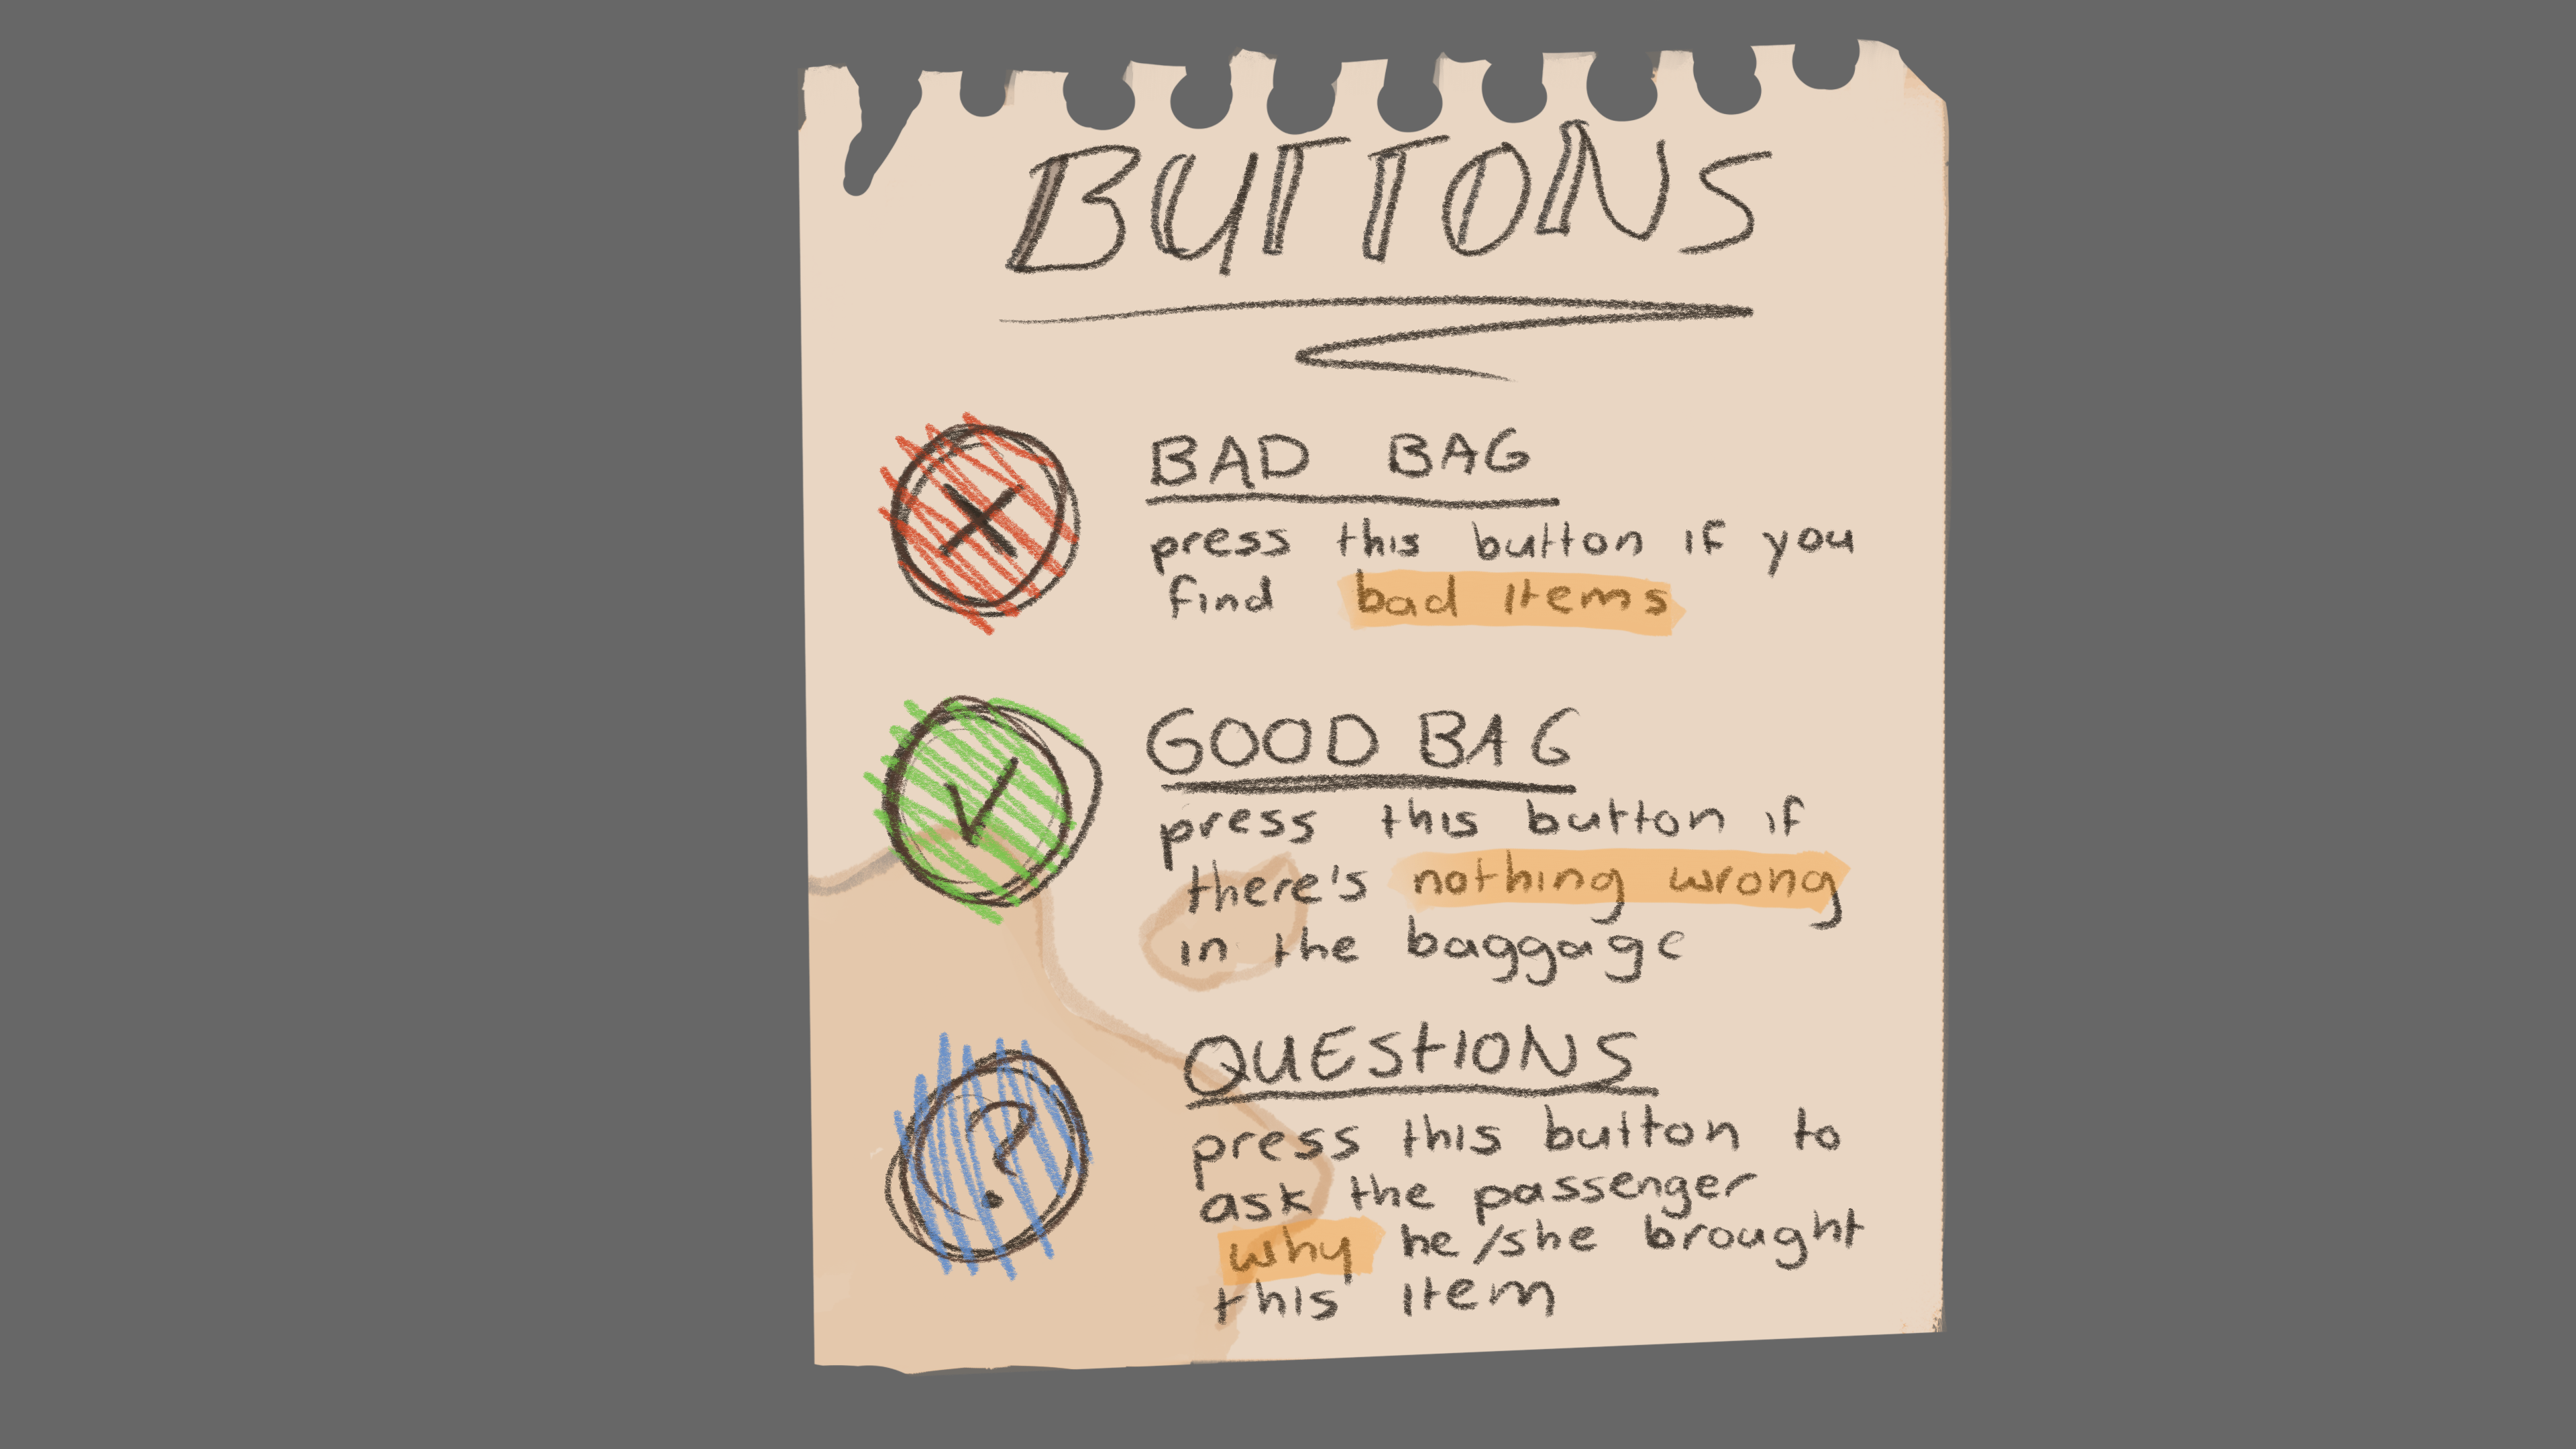 BUTTONS
BAD BAG
press this button if you
find bad items
GOOD BAG
press this button if
there's nothing wrong
in the baggage
?
QUEStIONS
press this button to
ask the passenger
why he/she brought
this item